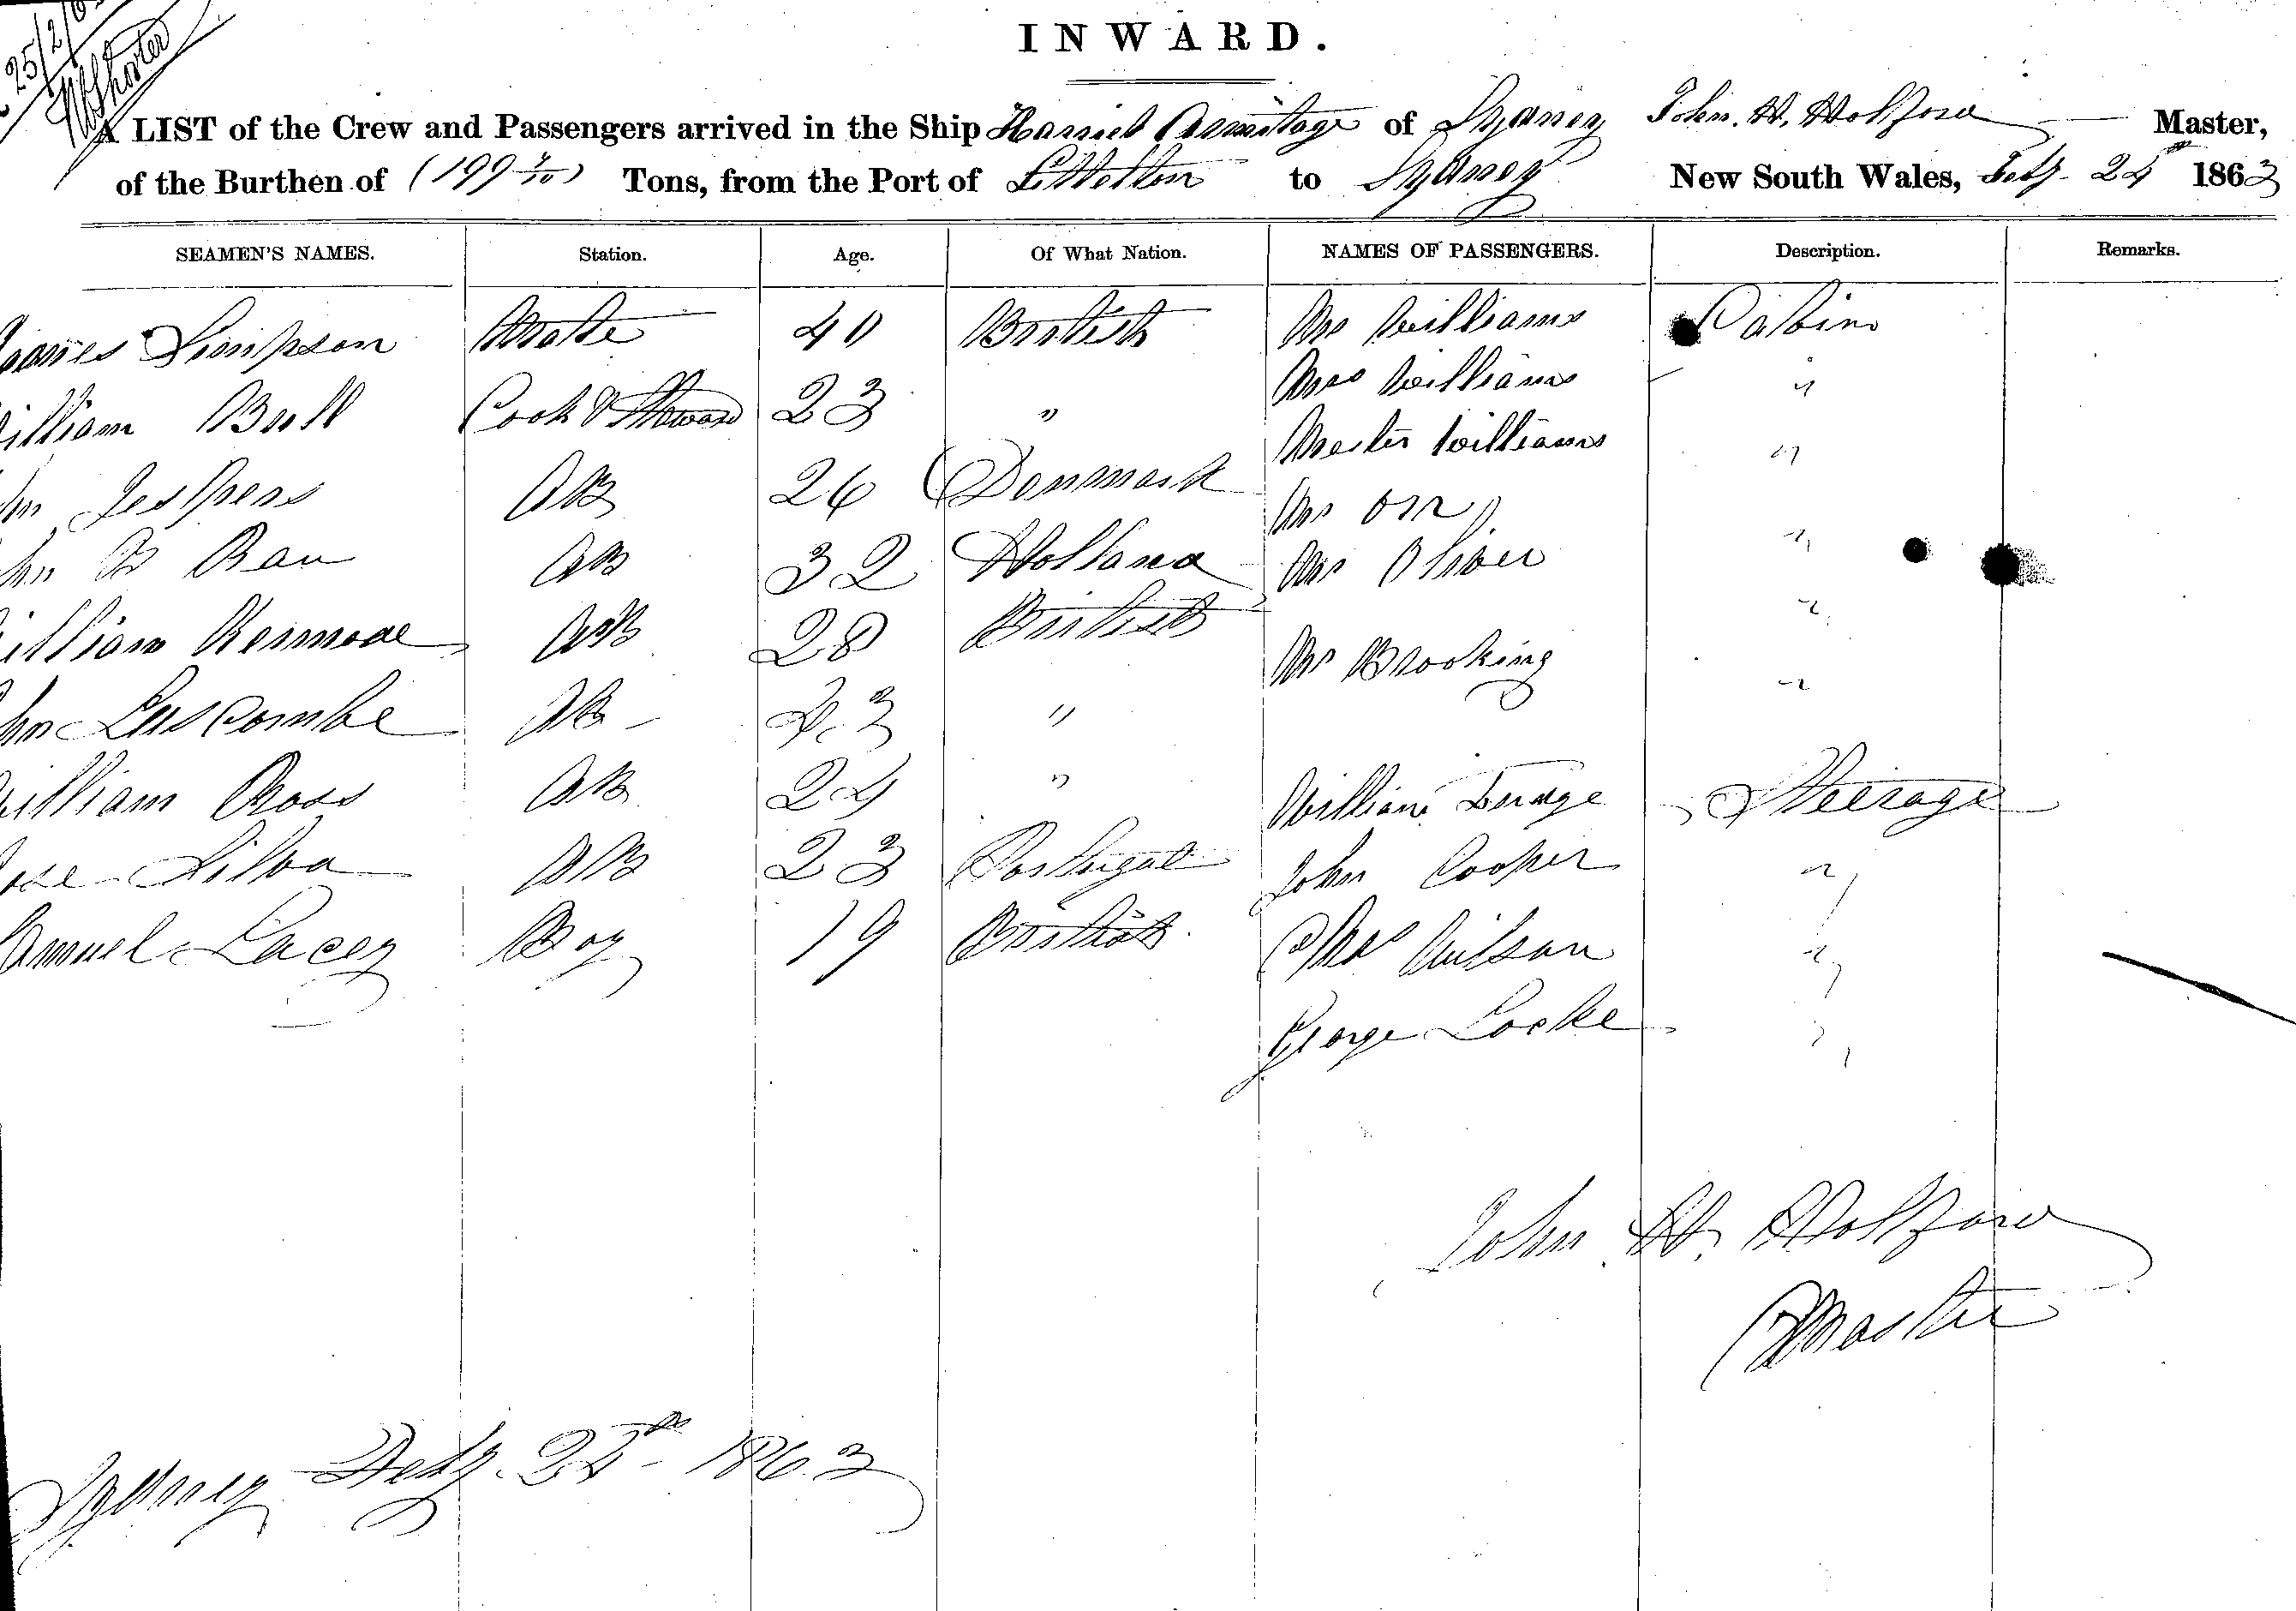 25/2/63
INWARD.
A LIST of the Crew and Passengers arrived in the Ship Harriet Armitage of Sydney John. H. Holford Master,
of the Burthen of (199 Tons, from the Port of Littelton to Sydney New South Wales, Feby 25th 1863
SEAMEN'S NAMES. Station. Age. Of What Nation. NAMES OF PASSENGERS. Description. Remarks.
James Simpson Mate 40 British Mr Williams Cabin
William Bull Cook & Steward 23 " Mrs Williams "
Master Williams "
John Jespers AB 26 Denmark Mr Orr "
John B Rau AB 32 Holland Mr Oliver "
William Kermode AB 28 British Mr Brooking "
John Luscombe AB 23 "
William Ross AB 24 " William Steerage
Jose Silva AB 23 Portugal John Cooper "
Samuel Lacey Boy 19 British Chas Wilson "
George Locke "
John H. Holford
Master
Sydney Feby. 25th 1863